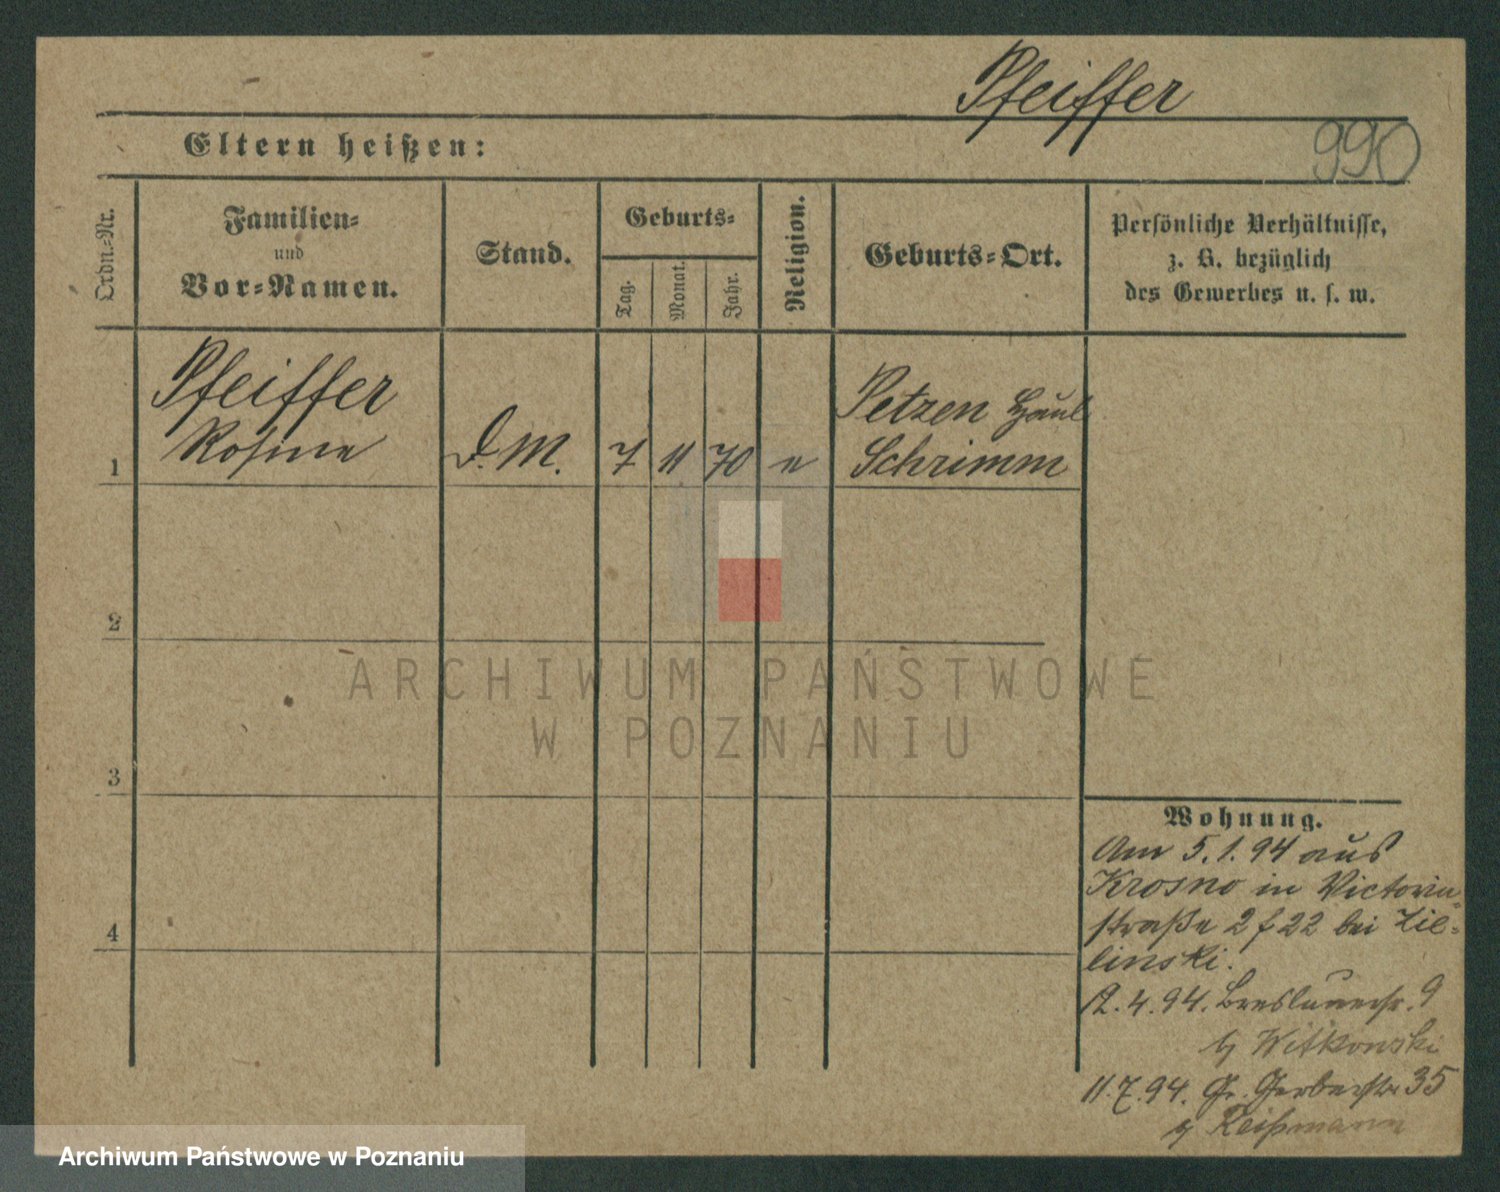 Pfeiffer
990
Eltern heißen:
Ordn.-Nr.
Familien-
und
Vor-Namen.
Stand.
Geburts-
Tag.
Monat.
Jahr.
Religion.
Geburts-Ort.
Persönliche Verhältnisse,
z. B. bezüglich
des Gewerbes u. s. w.
1
Pfeiffer
Rosine
D.M.
7
11
70
e
Petzen Haul
Schrimm
2
3
4
Wohnung.
Am 5.1.94 aus
Krosno in Victoria-
straße 2 f 22 bei Zie-
linski.
12.4.94. Breslauerstr. 9
bj Witkowski
11.7.94. Gr. Gerberstr 35
bj Reißmann
ARCHIWUM PAŃSTWOWE
W POZNANIU
Archiwum Państwowe w Poznaniu